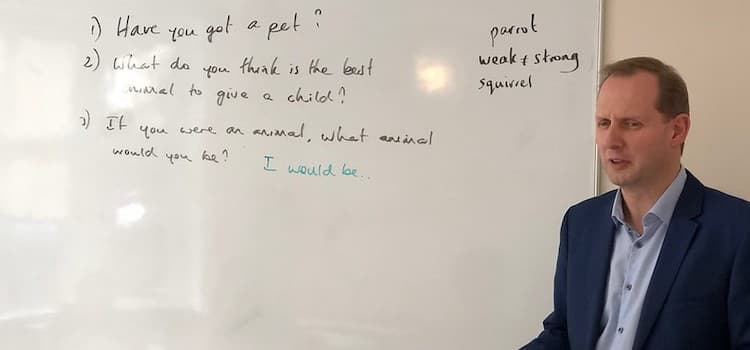 1) Have you got a pet?
2) What do you think is the best
animal to give a child?
3) If you were an animal, what animal
would you be? I would be..
parrot
weak ≠ strong
squirrel